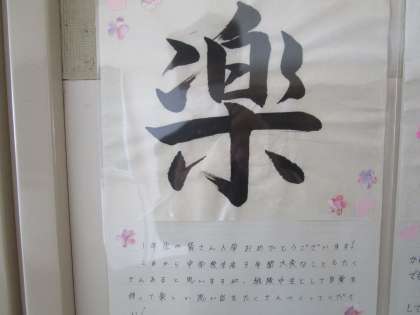 楽
1年生の皆さん入学おめでとうございます!
これから中学校生活3年間大変なこともたく
さんあると思いますが、姫路中生として自覚を
持って楽しい思い出をたくさんつくってくださ
い!
か
で
し